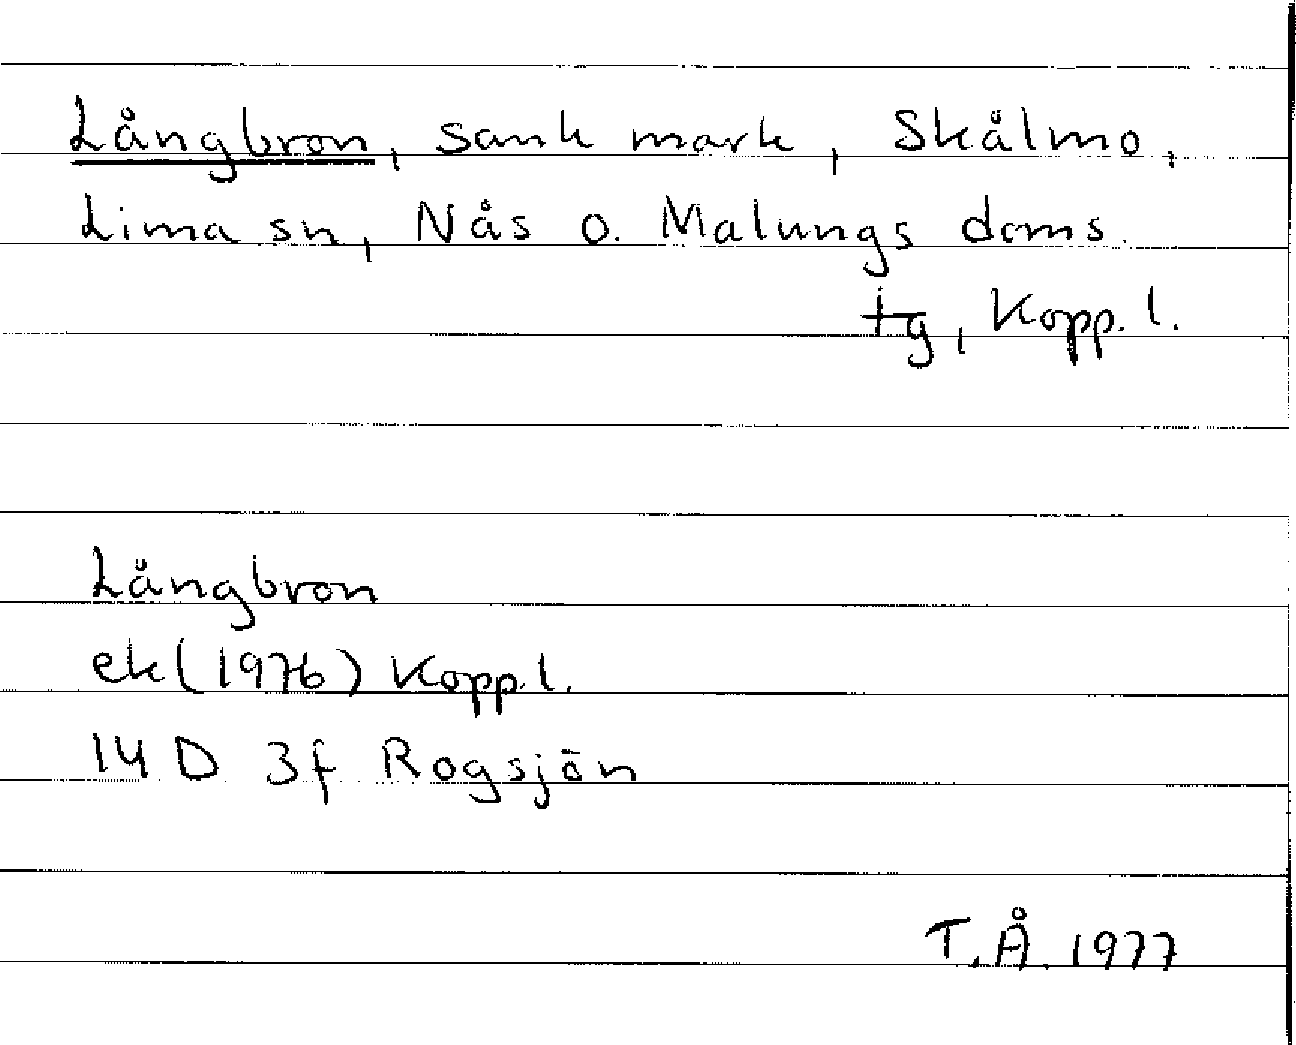 Långbron, sank mark, Skålmo,
Lima sn, Nås o. Malungs doms.
tg, Kopp. l.
Långbron
ek (1976) Kopp. l.
14 D 3f Rogsjön
T.Å. 1977